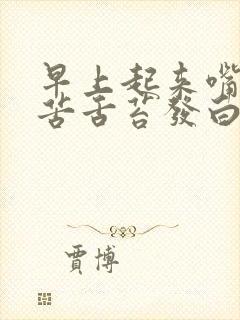 早上起来嘴
苦舌苔發白
賈博